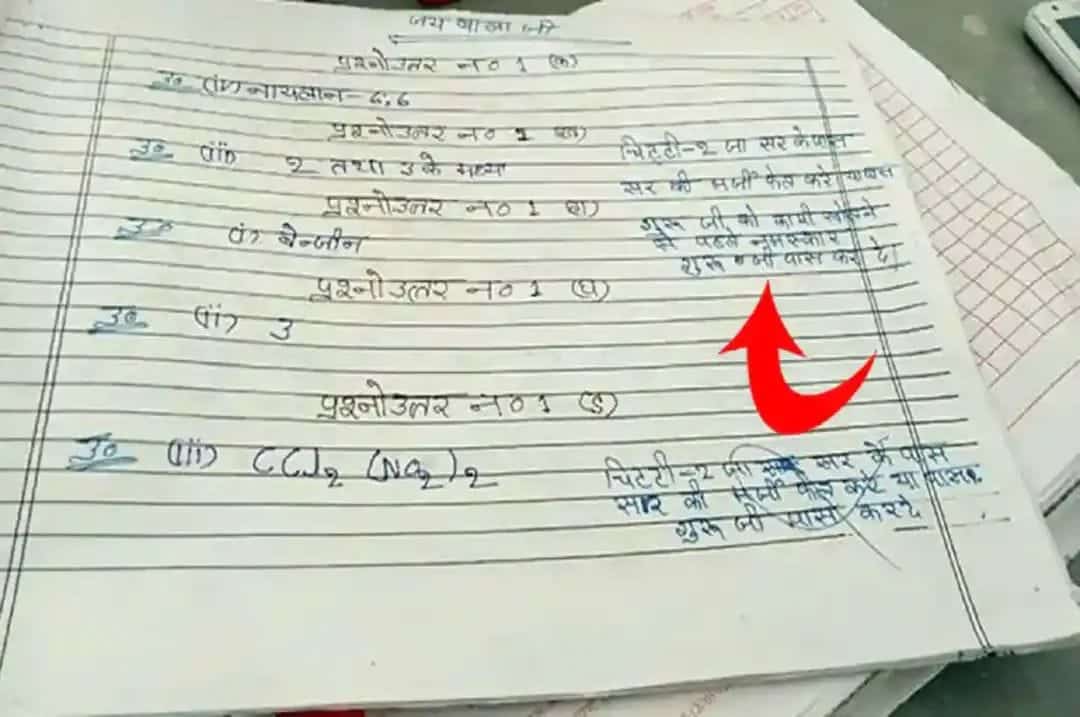 जय बाबा जी
प्रश्नोउत्तर न० 1 (क)
उ० (iv) नायलॉन-6,6
प्रश्नोउत्तर न० 1 (ख)
उ० (iii) 2 तथा 3 के मध्य
प्रश्नोउत्तर न० 1 (ग)
उ० (i) बेन्जीन
प्रश्नोउत्तर न० 1 (घ)
उ० (ii) 3
प्रश्नोउत्तर न० 1 (ङ)
उ० (iii) CCl₂ (NO₂)₂
चिटटी-2 जा सर के पास
सर की मर्जी फेल करे या पास
गुरू जी को कापी खोलने
से पहले नमस्कार
गुरू जी पास कर दे।
चिटटी-2 जा सर के पास
सार की मर्जी फेल करे या पास
गुरू जी पास कर दे